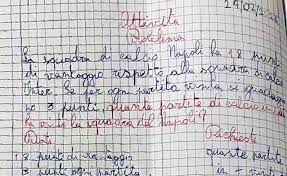 24/02/2023
Attività
Problema
La squadra di calcio Napoli ha 18 punti
di vantaggio rispetto alla squadra di calcio
Inter. Se per ogni partita vinta si guadagna
no 3 punti, quante partite di calcio in
la vinti la squadra del Napoli?
Dati Richieste
18 punti di vantaggio quante partite
3 punti ogni partita in + vinte